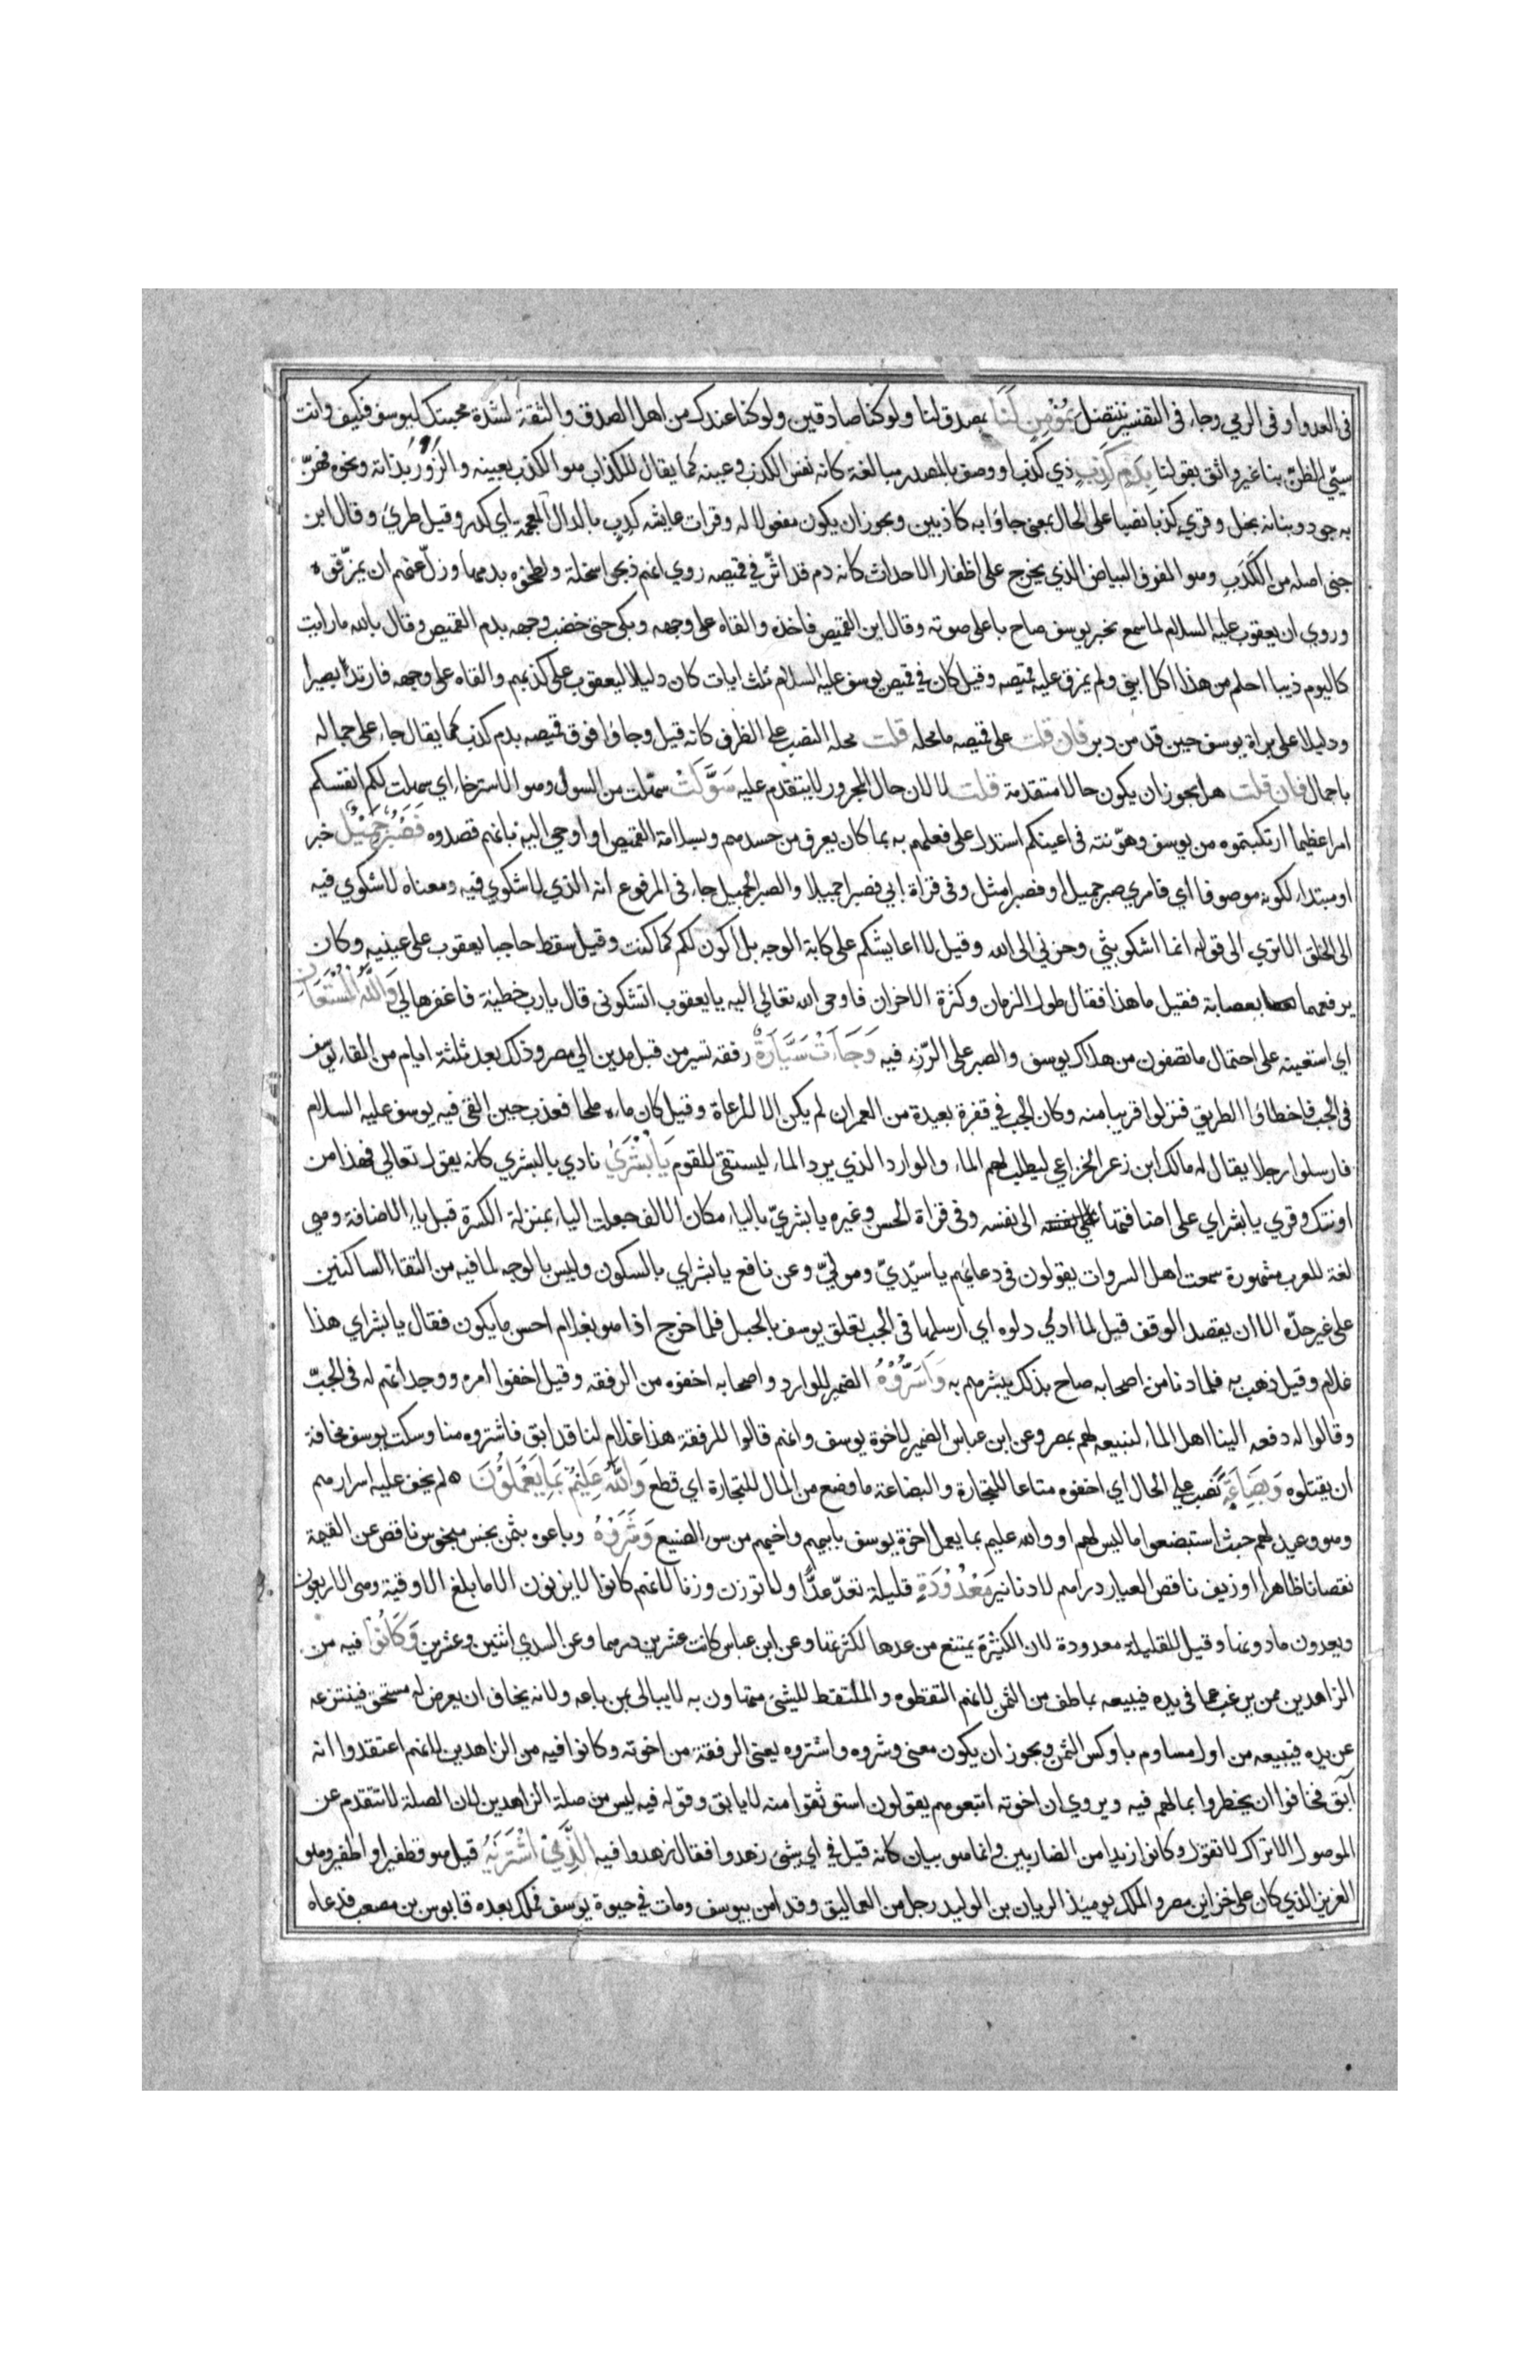 فى العدو او فى الرمي وجاء فى التفسير ننتضل بِمُؤْمِنٍ لَنَا بمصدق لنا ولو كنا صادقين ولو كنا عندك من اهل الصدق والثقة لشدة محبتك ليوسف فكيف وانت
سيّئ الظنّ بنا غير واثق بقولنا بِدَمٍ كَذِبٍ ذي كذب او وصف بالمصدر مبالغة كانه نفس الكذب وعينه كما يقال للكذاب هو الكذب بعينه والزور بذاته ونحوه فهنّ
به جود وبنانه بخل وقرئ كذبا نصبا على الحال بمعنى جاؤا به كاذبين ويجوز ان يكون مفعولا له وقرات عايشه كدب بالدال المعجمة اي كدر وقيل طريّ وقال ابن
جنى اصله من الكَدَبِ وهو الفوف البياض الذي يخرج على اظفار الاحداث كانه دم قد اثّر في قميصه روي انهم ذبحوا سخلة ولطخوه بدمها وزلّ عنهم ان يمزّقوه
وروي ان يعقوب عليه السلام لما سمع بخبر يوسف صاح باعلى صوته وقال اين القميص فاخذه والقاه على وجهه وبكى حتى خضب وجهه بدم القميص وقال بالله ما رايت
كاليوم ذيبا احلم من هذا اكل ابني ولم يمزق عليه قميصه وقيل كان في قميص يوسف عليه السلام ثلث ايات كان دليلا ليعقوب على كذبهم والقاه على وجهه فارتدّ بصيرا
ودليلا على براة يوسف حين قد من دبر فان قلت على قميصه ما محله قلت محله النصب على الظرف كانه قيل وجاؤا فوق قميصه بدم كذب كما يقال جاء على جماله
باحمال فان قلت هل يجوز ان يكون حالا متقدمة قلت لا لان حال المجرور لا يتقدم عليه سَوَّلَتْ سهّلت من السول وهو الاسترخاء اي سهلت لكم انفسكم
امرا عظيما ارتكبتموه من يوسف وهوّنته فى اعينكم استدل على فعلهم به بما كان يعرف من حسدهم وبسلامة القميص او اوحي اليه بانهم قصدوه فَصَبْرٌ جَمِيْلٌ خبر
او مبتداء لكونه موصوفا اي فامري صبر جميل او فصبر امثل وفى قراة ابي فصبرا جميلا والصبر الجميل جاء فى المرفوع انه الذي لا شكوي فيه ومعناه لا شكوي فيه
الى الخلق الا تري الى قوله انما اشكو بثي وحزني الى الله وقيل لا اعايشكم على كابة الوجه بل اكون لكم كما كنت وقيل سقط حاجبا يعقوب على عينيه وكان
يرفعهما بعصابة فقيل ما هذا فقال طول الزمان وكثرة الاحزان فاوحى الله تعالى اليه يا يعقوب اتشكونى قال يا رب خطيئة فاغفرها لي وَاللّٰهُ الْمُسْتَعَانُ
اي استعينه على احتمال ما تصفون من هلاك يوسف والصبر على الرّزء فيه وَجَاءَتْ سَيَّارَةٌ رفقة تسير من قبل مدين الي مصر وذلك بعد ثلثة ايام من القاء يوسف
فى الجب فاخطاؤا الطريق فنزلوا قريبا منه وكان الجب في قفرة بعيدة من العمران لم يكن الا للرعاة وقيل كان ماءه ملحا فعذب حين القي فيه يوسف عليه السلام
فارسلوا رجلا يقال له مالك ابن زعر الخزاعي ليطلب لهم الماء والوارد الذي يرد الماء ليستقي للقوم يَا بُشْرٰيٰ نادي بالبشري كانه يقول تعالي فهذا من
اونتك وقرئ يا بشراي على اضافتها الى نفسه وفى قراة الحسن وغيره يا بشريّ بالياء مكان الالف جعلت الياء بمنزلة الكسرة قبل ياء الاضافة وهي
لغة للعرب مشهورة سمعت اهل السروات يقولون فى دعايهم يا سيّديّ وموليّ وعن نافع يا بشراي بالسكون وليس بالوجه لما فيه من التقاء الساكنين
على غير حدّه الا ان يقصد الوقف قيل لما ادلي دلوه اي ارسلها فى الجب تعلق يوسف بالحبل فلما خرج اذا هو بغلام احسن ما يكون فقال يا بشراي هذا
غلام وقيل ذهب به فلما دنا من اصحابه صاح بذلك يبشرهم به وَاَسَرُّوْهُ الضمير للوارد واصحابه اخفوه من الرفقه وقيل اخفوا امره ووجدانهم له فى الجبّ
وقالوا له دفعه الينا اهل الماء لنبيعه لهم بمصر وعن ابن عباس الضمير لاخوة يوسف وانهم قالوا للرفقة هذا غلام لنا قد ابق فاشتروه منا وسكت يوسف مخافة
ان يقتلوه وَبِضَاعَةً نصب على الحال اي اخفوه متاعا للتجارة والبضاعة ما وضع من المال للتجارة اي قطع وَاللّٰهُ عَلِيْمٌ بِمَا يَعْمَلُوْنَ ه لم يخف عليه اسرارهم
وهو وعيد لهم حيث استبضعوا ما ليس لهم او والله عليم بما يعمل اخوة يوسف بابيهم واخيهم من سوء الصنيع وَشَرَوْهُ وباعوه بثمن بخس مبخوس ناقص عن القيمة
نقصانا ظاهرا او زيف ناقص العيار دراهم لا دنانير مَعْدُوْدَةٍ قليلة تعدّ عدًّا ولا توزن وزنا لانهم كانوا لا يزنون الا ما بلغ الاوقية وهي الاربعون
ويعدون ما دونها وقيل للقليلة معدودة لان الكثيرة يمتنع من عدها لكثرتها وعن ابن عباس كانت عشرين درهما وعن السدي اثنين وعشرين وَكَانُوْا فيه من
الزاهدين ممن يرغب عما فى يده فيبيعه بما طف من الثمن لانهم التقطوه والملتقط للشيئ متهاون به لا يبالى بمن باعه ولانه يخاف ان يعرض له مستحق فينتزعه
عن يده فيبيعه من اول مساوم باوكس الثمن ويجوز ان يكون معنى وشروه واشتروه يعنى الرفقة من اخوته وكانوا فيه من الزاهدين لانهم اعتقدوا انه
آبق فخافوا ان يخطروا بمالهم فيه ويروي ان اخوته اتبعوهم يقولون استوثقوا منه لا يابق وقوله فيه ليس من صلة الزاهدين لان الصلة لا تتقدم عن
الموصول الا تراك لا تقول وكانوا زيدا من الضاربين وانما هو بيان كانه قيل في اي شيئ زهدوا فقال زهدوا فيه الَّذِيْ اشْتَرٰيهُ قيل هو قطفير او اطفير وهو
العزيز الذي كان على خزاين مصر والملك يوميذ الريان بن الوليد رجل من العماليق وقد امن بيوسف ومات في حيوة يوسف فملك بعده قابوس بن مصعب فدعاه